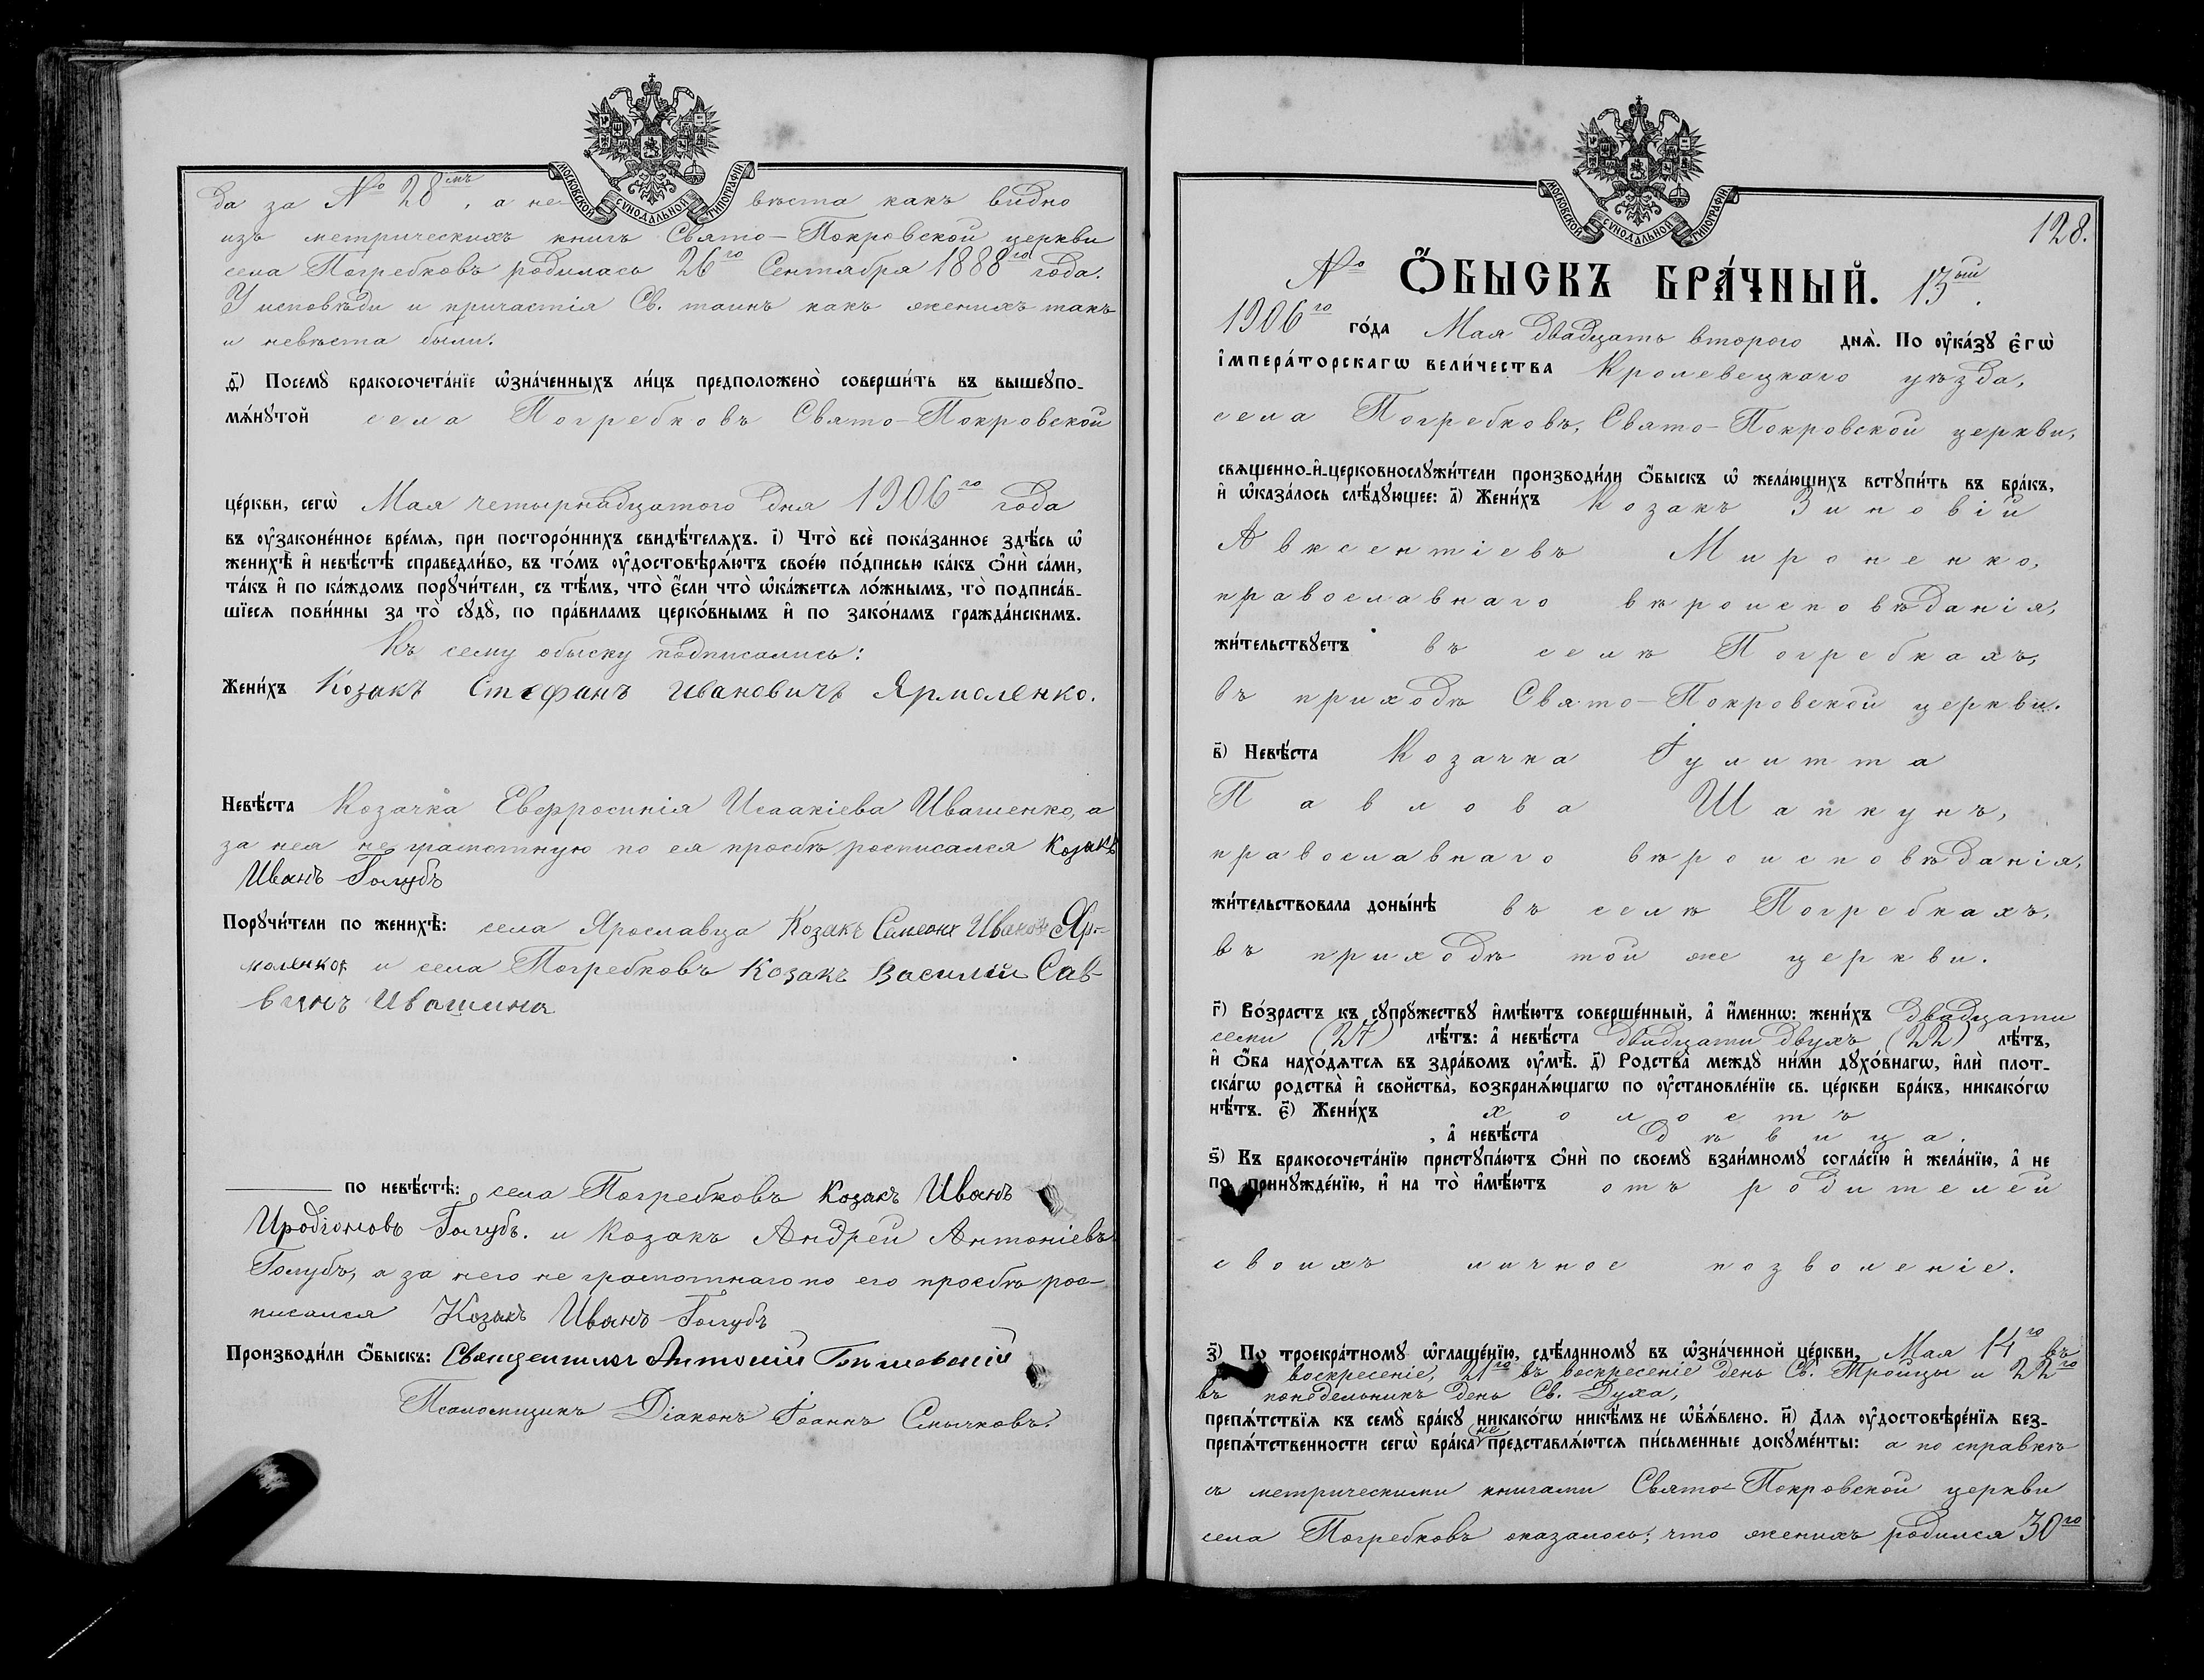 да за № 28мъ, а не
МОСКОВСКОЙ СѴНОДАЛЬНОЙ ТИПОГРАФІИ.
вѣста какъ видно
изъ метрическихъ книгъ Свято-Покровской церкви
села Погребковъ родилась 26го Сентября 1888го года.
У исповѣди и причастія Св. таинъ какъ женихъ такъ
и невѣста были.
ѳ҃) Посемꙋ̀ бракосочета́нїе ѡ҆зна́ченныхъ ли́цъ предположено̀ соверши́ть въ вышеꙋпо-
мѧ́нꙋтой села Погребковъ Свято-Покровской
це́ркви, сегѡ̀ Мая четырнадцатого дня 1906го года
въ ᲂу҆зако́не́нное вре́мя, при посторо́ннихъ свидѣ́телѧхъ. і҃) Что̀ всѐ пока́занное здѣ́сь ѡ҆
женихѣ̀ и҆ невѣ́стѣ справедли́во, въ то́мъ ᲂу҆достовѣрѧ́ютъ свое́ю по́дписью ка́къ ѻ҆нѝ са́ми,
та́къ и҆ по ка́ждомъ порꙋчи́тели, съ тѣ́мъ, что̀ є҆́сли что̀ ѡ҆ка́жется ло́жнымъ, то̀ подписа́в-
шїеся пови́нны за то̀ сꙋдꙋ̀, по пра́виламъ церко́внымъ и҆ по зако́намъ гражда́нскимъ.
Къ сему обыску подписались:
Жени́хъ Козакъ Стефанъ Ивановичъ Ярмоленко.
Невѣ́ста Козачка Евфросинія Исаакіева Ивашенко, а
за нея не грамотную по ея просьбѣ росписался Козакъ
Иванъ Голубъ
Порꙋчи́тели по женихѣ̀: села Ярославца Козакъ Симеонъ Ивановъ Яр-
моленко и села Погребковъ Козакъ Василій Сав-
винъ Ивашина
по невѣ́стѣ: села Погребковъ Козакъ Иванъ
Иродіоновъ Голубъ. и Козакъ Андрей Антоніевъ
Голубъ, а за него не грамотнаго по его просьбѣ рос-
писался Козакъ Иванъ Голубъ
Производи́ли ѻ҆́быскъ: Священникъ Антоній
Псаломщикъ Діаконъ Іоаннъ Смычковъ.
МОСКОВСКОЙ СѴНОДАЛЬНОЙ ТИПОГРАФІИ.
128.
№ Ѻ҆́БЫСКЪ БРА́ЧНЫЙ. 13ый.
1906го го́да Мая двадцать второго днѧ̀. По ᲂу҆ка́зꙋ є҆гѡ̀
і҆мпера́торскагѡ вели́чества Кролевецкаго уѣзда,
села Погребковъ, Свято-Покровской церкви,
священно-и҆-церковнослꙋжи́тели производи́ли ѻ҆́быскъ ѡ҆ жела́ющихъ вступи́ть въ бра́къ,
и҆ ѡ҆каза́лось слѣ́дꙋющее: а҃) Жени́хъ Козакъ Зиновій
Авксентіевъ Мироненко,
православнаго вѣроисповѣданія,
жи́тельствꙋетъ въ селѣ Погребкахъ,
въ приходѣ Свято-Покровской церкви.
в҃) Невѣ́ста Козачка Іулитта
Павлова Шайкунъ,
православнаго вѣроисповѣданія,
жи́тельствовала доны́нѣ въ селѣ Погребкахъ,
въ приходѣ той же церкви.
г҃) Во́зрастъ къ сꙋпрꙋ́жествꙋ и҆мѣ́ютъ соверше́нный, а҆ и҆́менно: жени́хъ двадцати
семи (27) лѣ́тъ: а҆ невѣ́ста двадцати двухъ (22) лѣ́тъ,
и҆ ѻ҆́ба нахо́дѧтсѧ въ здра́вомъ ᲂу҆мѣ̀. д҃) Родства̀ междꙋ̀ ни́ми дꙋхо́внагѡ, и҆лѝ плот-
ска́гѡ родства̀ и҆ сво́йства̀, возбранѧ́ющагѡ по ᲂу҆становле́нїю св. це́ркви бра́къ, никако́гѡ
нѣ́тъ. є҃) Жени́хъ холостъ
, а҆ невѣ́ста дѣвица.
ѕ҃) Къ бракосочета́нїю пристꙋпа́ютъ ѻ҆нѝ по своемꙋ̀ взаи́мномꙋ согла́сїю и҆ жела́нїю, а҆ не
по принꙋжде́нїю, и҆ на то̀ и҆мѣ́ютъ отъ родителей
своихъ личное позволеніе.
з҃) По троекра́тномꙋ ѡ҆глаше́нїю, сдѣ́ланномꙋ въ ѡ҆зна́ченной це́ркви, Мая 14го въ
воскресеніе, 21го въ воскресеніе день Св. Троицы и 22го
въ понедѣльникъ день Св. Духа,
препѧ́тствїѧ къ семꙋ̀ бра́кꙋ никако́гѡ никѣ́мъ не ѡ҆б̾ѧ́влено. и҃) Для ᲂу҆достовѣре́нїѧ без-
препѧ́тственности сегѡ̀ бра́ка не представлѧ́ются пи́сьменные докꙋме́нты: а по справкѣ
съ метрическими книгами Свято-Покровской церкви
села Погребковъ оказалось; что женихъ родился 30го